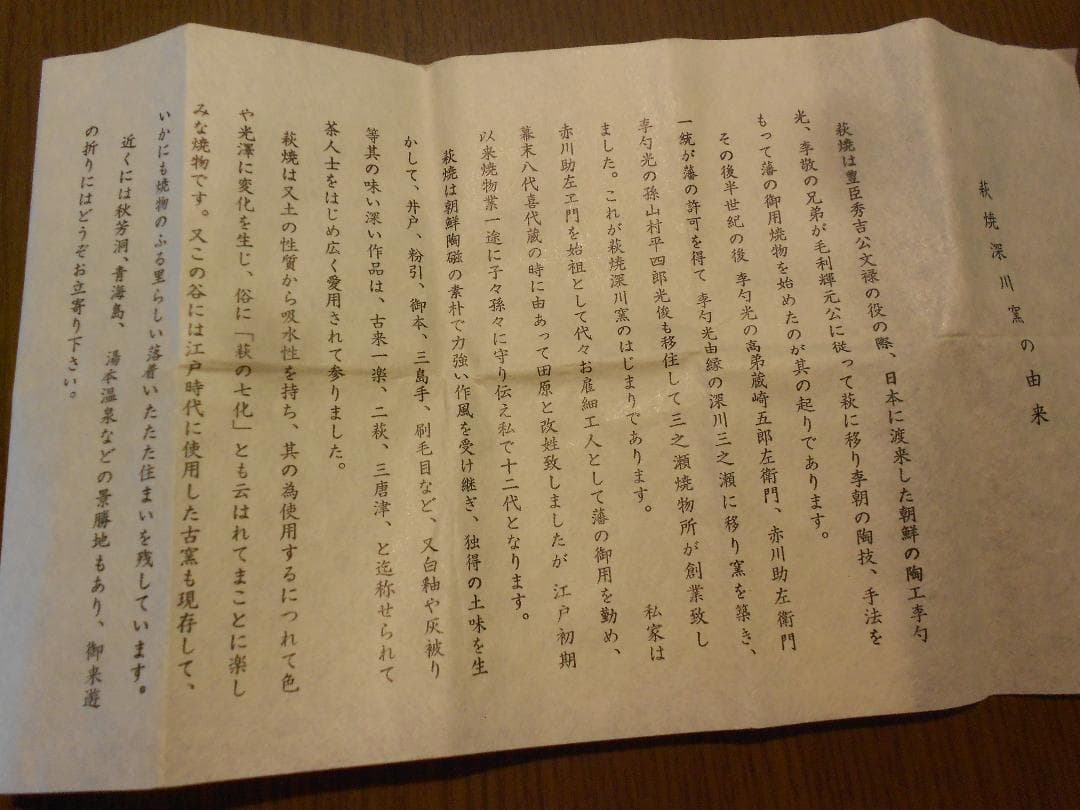 萩焼深川窯の由来
萩焼は豊臣秀吉公文禄の役の際、日本に渡来した朝鮮の陶工李勺
光、李敬の兄弟が毛利輝元公に従って萩に移り李朝の陶技、手法を
もって藩の御用焼物を始めたのが其の起りであります。
その後半世紀の後 李勺光の高弟蔵崎五郎左衛門、赤川助左衛門
一統が藩の許可を得て 李勺光由縁の深川三之瀬に移り窯を築き、
李勺光の孫山村平四郎光俊も移住して三之瀬焼物所が創業致し
ました。これが萩焼深川窯のはじまりであります。 私家は
赤川助左ヱ門を始祖として代々お雇細工人として藩の御用を勤め、
幕末八代喜代蔵の時に由あって田原と改姓致しましたが 江戸初期
以来焼物業一途に子々孫々に守り伝え私で十二代となります。
萩焼は朝鮮陶磁の素朴で力強い作風を受け継ぎ、独得の土味を生
かして、井戸、粉引、御本、三島手、刷毛目など、又白釉や灰被り
等其の味い深い作品は、古来一楽、二萩、三唐津、と迄称せられて
茶人士をはじめ広く愛用されて参りました。
萩焼は又土の性質から吸水性を持ち、其の為使用するにつれて色
や光澤に変化を生じ、俗に「萩の七化」とも云はれてまことに楽し
みな焼物です。又この谷には江戸時代に使用した古窯も現存して、
いかにも焼物のふる里らしい落着いたたた住まいを残しています。
近くには秋芳洞、青海島、 湯本温泉などの景勝地もあり、御来遊
の折りにはどうぞお立寄り下さい。